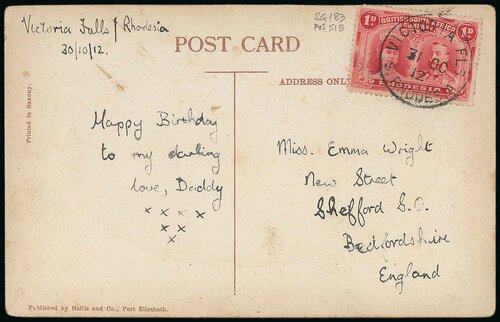 Victoria Falls / Rhodesia
30/10/12.
SG 183
POS. 51B
POST CARD
ADDRESS ONLY
1D
BRITISH SOUTH AFRICA
COMPANY
1D
RHODESIA
VICTORIA FLS
31 OC
12
S. RHODESIA
Printed in Saxony.
Happy Birthday
to my darling
love, Daddy
x x x x
x x
x
Miss. Emma Wright
New Street
Shefford S.O.
Bedfordshire
England
Published by Hallis and Co., Port Elizabeth.